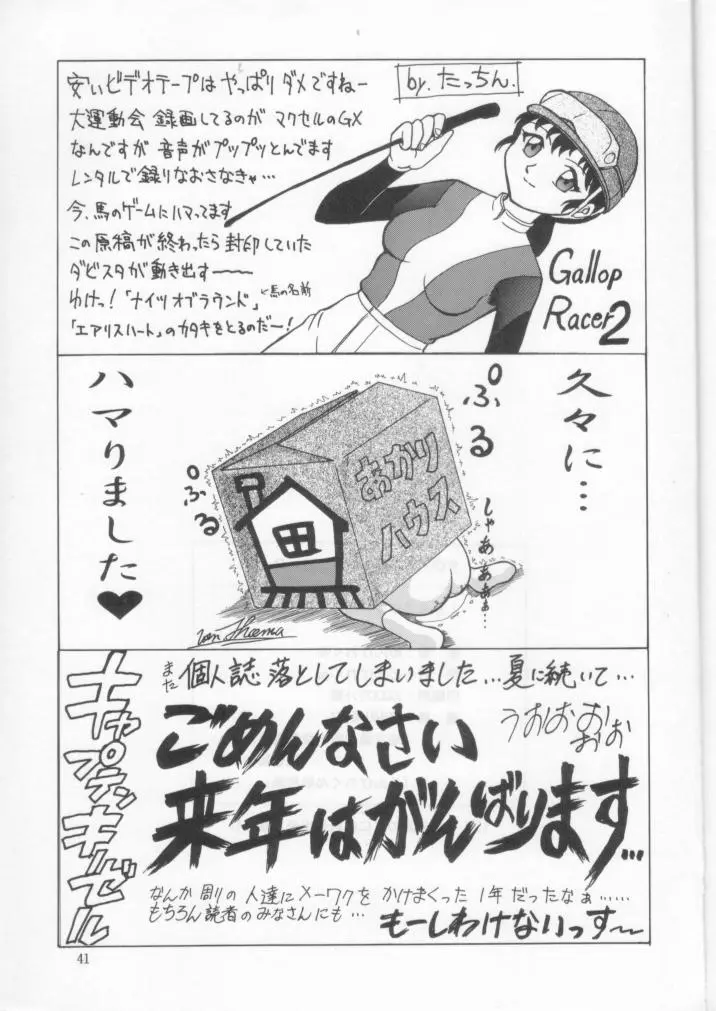 安いビデオテープはやっぱりダメですねー
大運動会 録画してるのが マクセルのGX
なんですが 音声がプップッとんでます
レンタルで録りなおさなきゃ…
今、馬のゲームにハマってます
この原稿が終わったら 封印していた
ダビスタが動き出す〜〜
ゆけっ!「ナイツオブラウンド」
馬の名前
「エアリスハート」のカタキをとるのだー!
by. たっちん.
Gallop
Racer 2
久々に…
ハマりました♥
ぷる
ぷる
あかり
ハウス
しゃあああぁ…
キャプテンキルゼル
また 個人誌 落としてしまいました…夏に続いて…
うおおお
おお
ごめんなさい
来年はがんばります…
なんか 周りの 人達に メーワクを かけまくった 1年 だったなぁ……
もちろん読者のみなさんにも…
もーしわけないっす〜
41